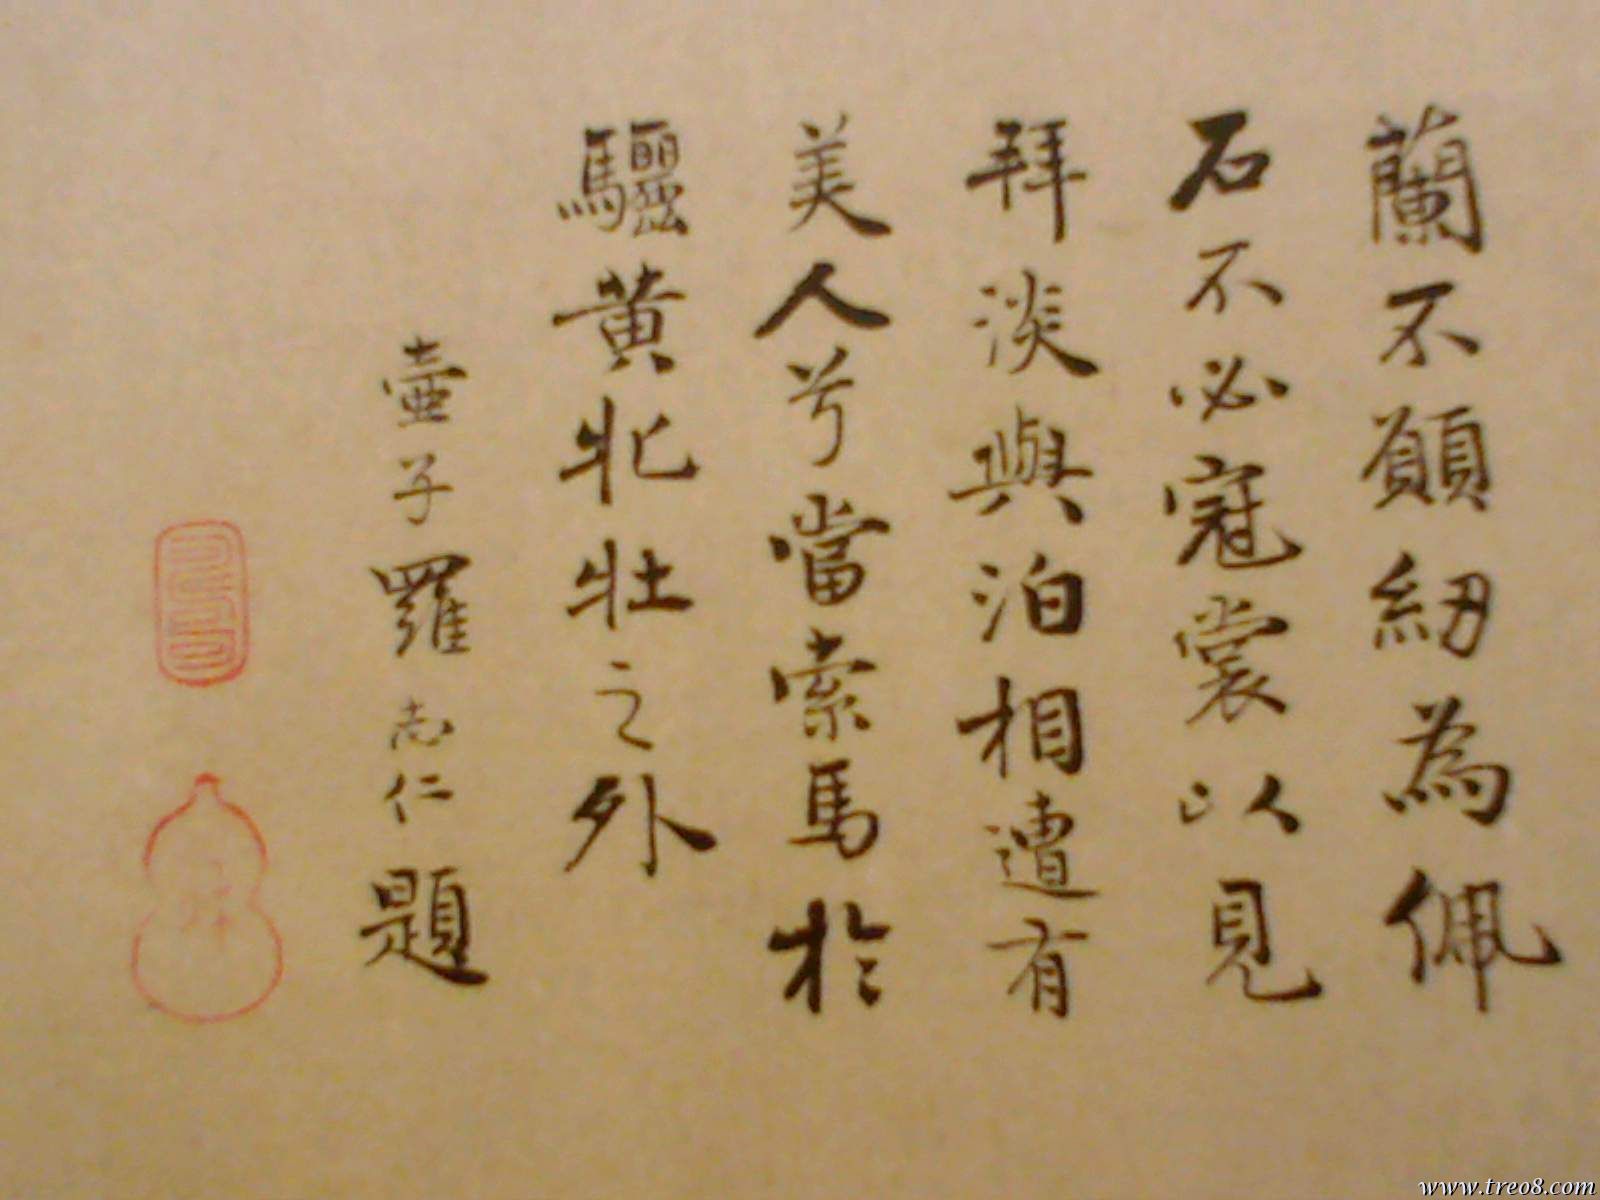 蘭不願紉為佩
石不必冠裳以見
拜淡與泊相遭有
美人兮當索馬於
驪黄牝牡之外
壺子羅志仁題
www.treo8.com